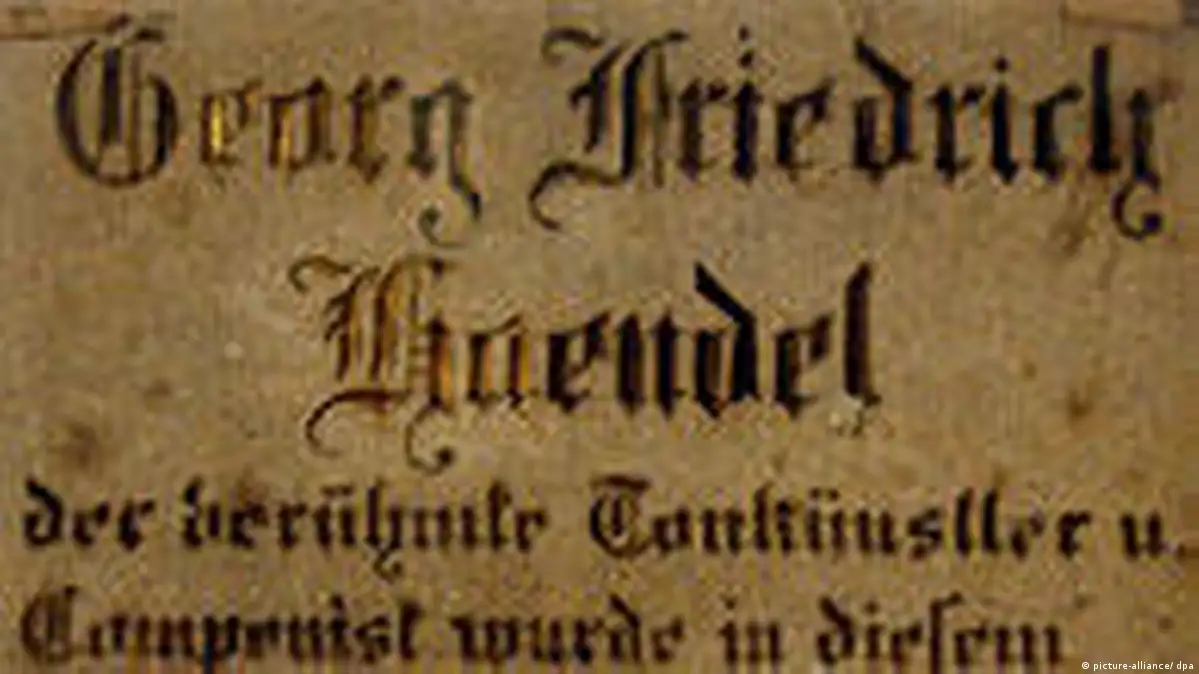 Georg Friedrich
Haendel
der berühmte Tonkünstler u.
Componist wurde in diesem
© picture-alliance/ dpa